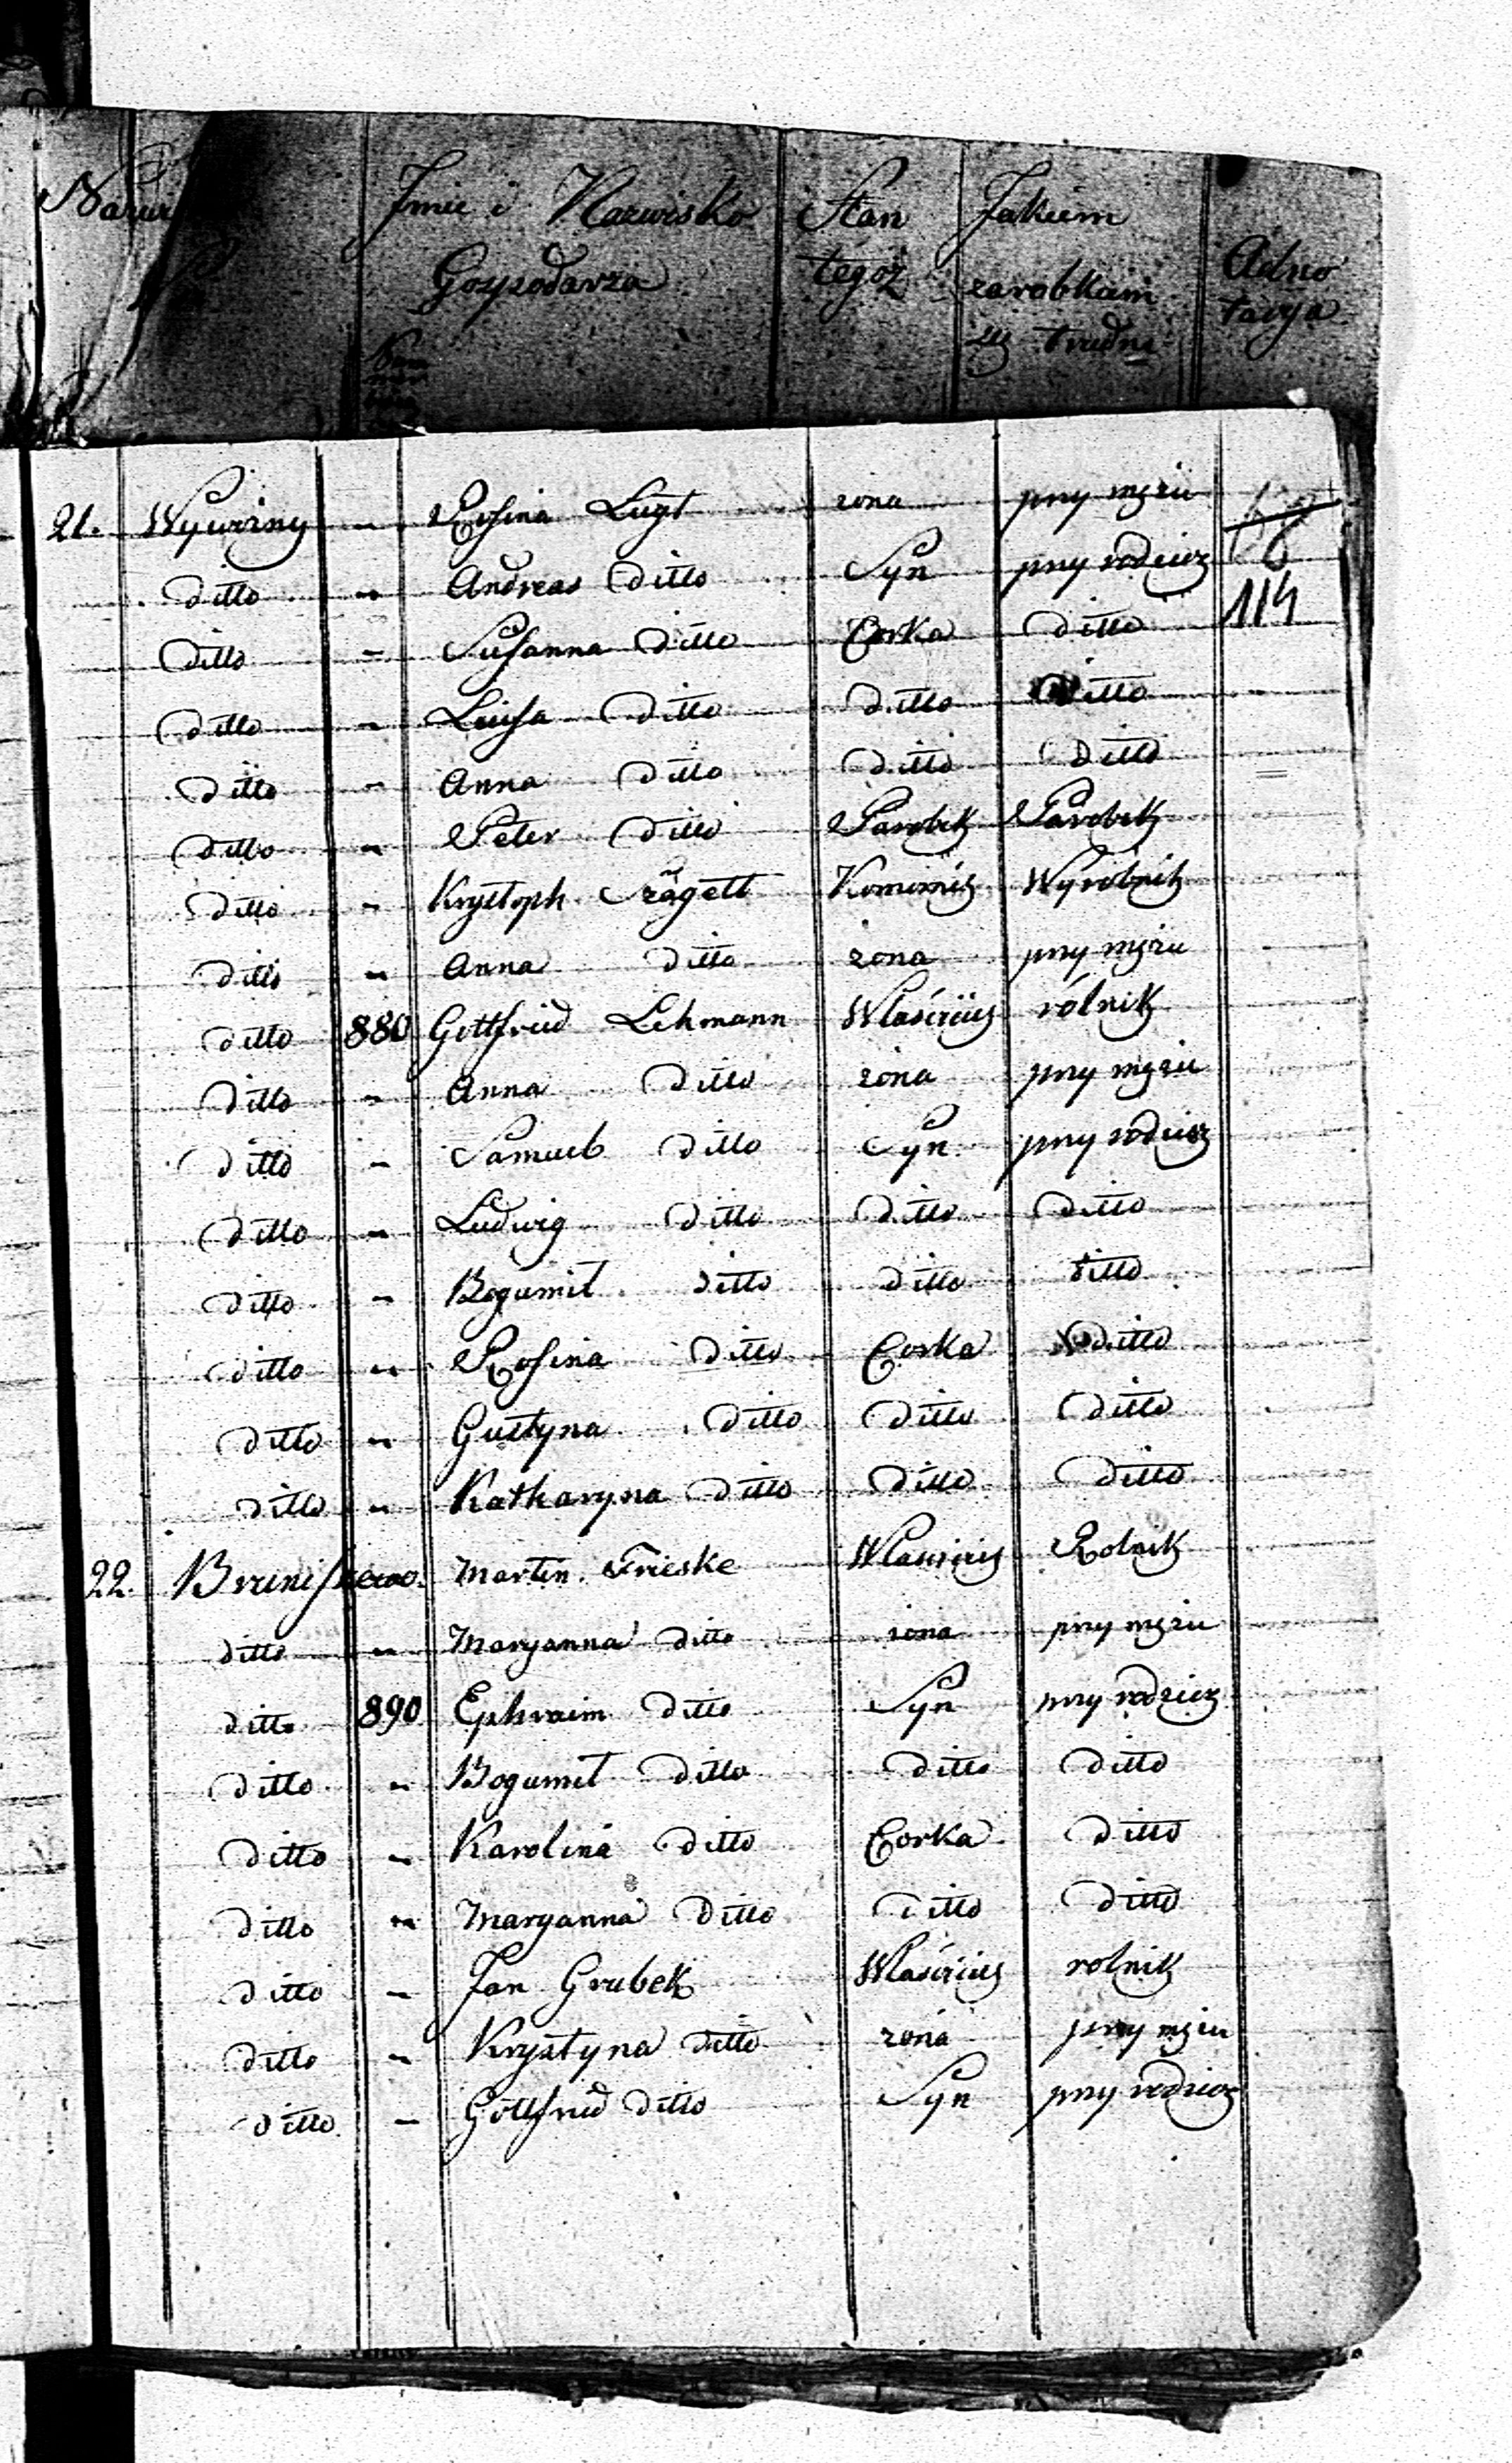 Imie i Nazwisko Gospodarza Stan tegoż Jakiem zarobkiem się trudni Adnotacya
21. Wywoziny - Rosina Lugt zona przy mężu
ditto - Andreas ditto Syn przy rodzicz 114
ditto - Susanna ditto Corka ditto
ditto - Luisa ditto ditto ditto
ditto - Anna ditto ditto ditto
ditto - Peter ditto Parobek Parobek
ditto - Krystoph Komornik Wyrobnik
ditto - Anna ditto zona przy mężu
ditto 880 Gottfried Lehmann Właściciel rólnik
ditto - Anna ditto żona przy mężu
ditto - Samuel ditto Syn przy rodzicz
ditto - Ludwig ditto ditto ditto
ditto - Bogumił ditto ditto ditto
ditto - Rosina ditto Corka ditto
ditto - Gustyna ditto ditto ditto
ditto - Katharyna ditto ditto ditto
22. Martin Frieske Właściciel Rolnik
ditto - Maryanna ditto żona przy mężu
ditto 890 Ephraim ditto Syn przy rodzicz
ditto - Bogumił ditto ditto ditto
ditto - Karolina ditto Corka ditto
ditto - Maryanna ditto ditto ditto
ditto - Jan Grubek Właściciel rolnik
ditto - Krystyna ditto żona przy mężu
ditto - Gottfried ditto Syn przy rodzicz